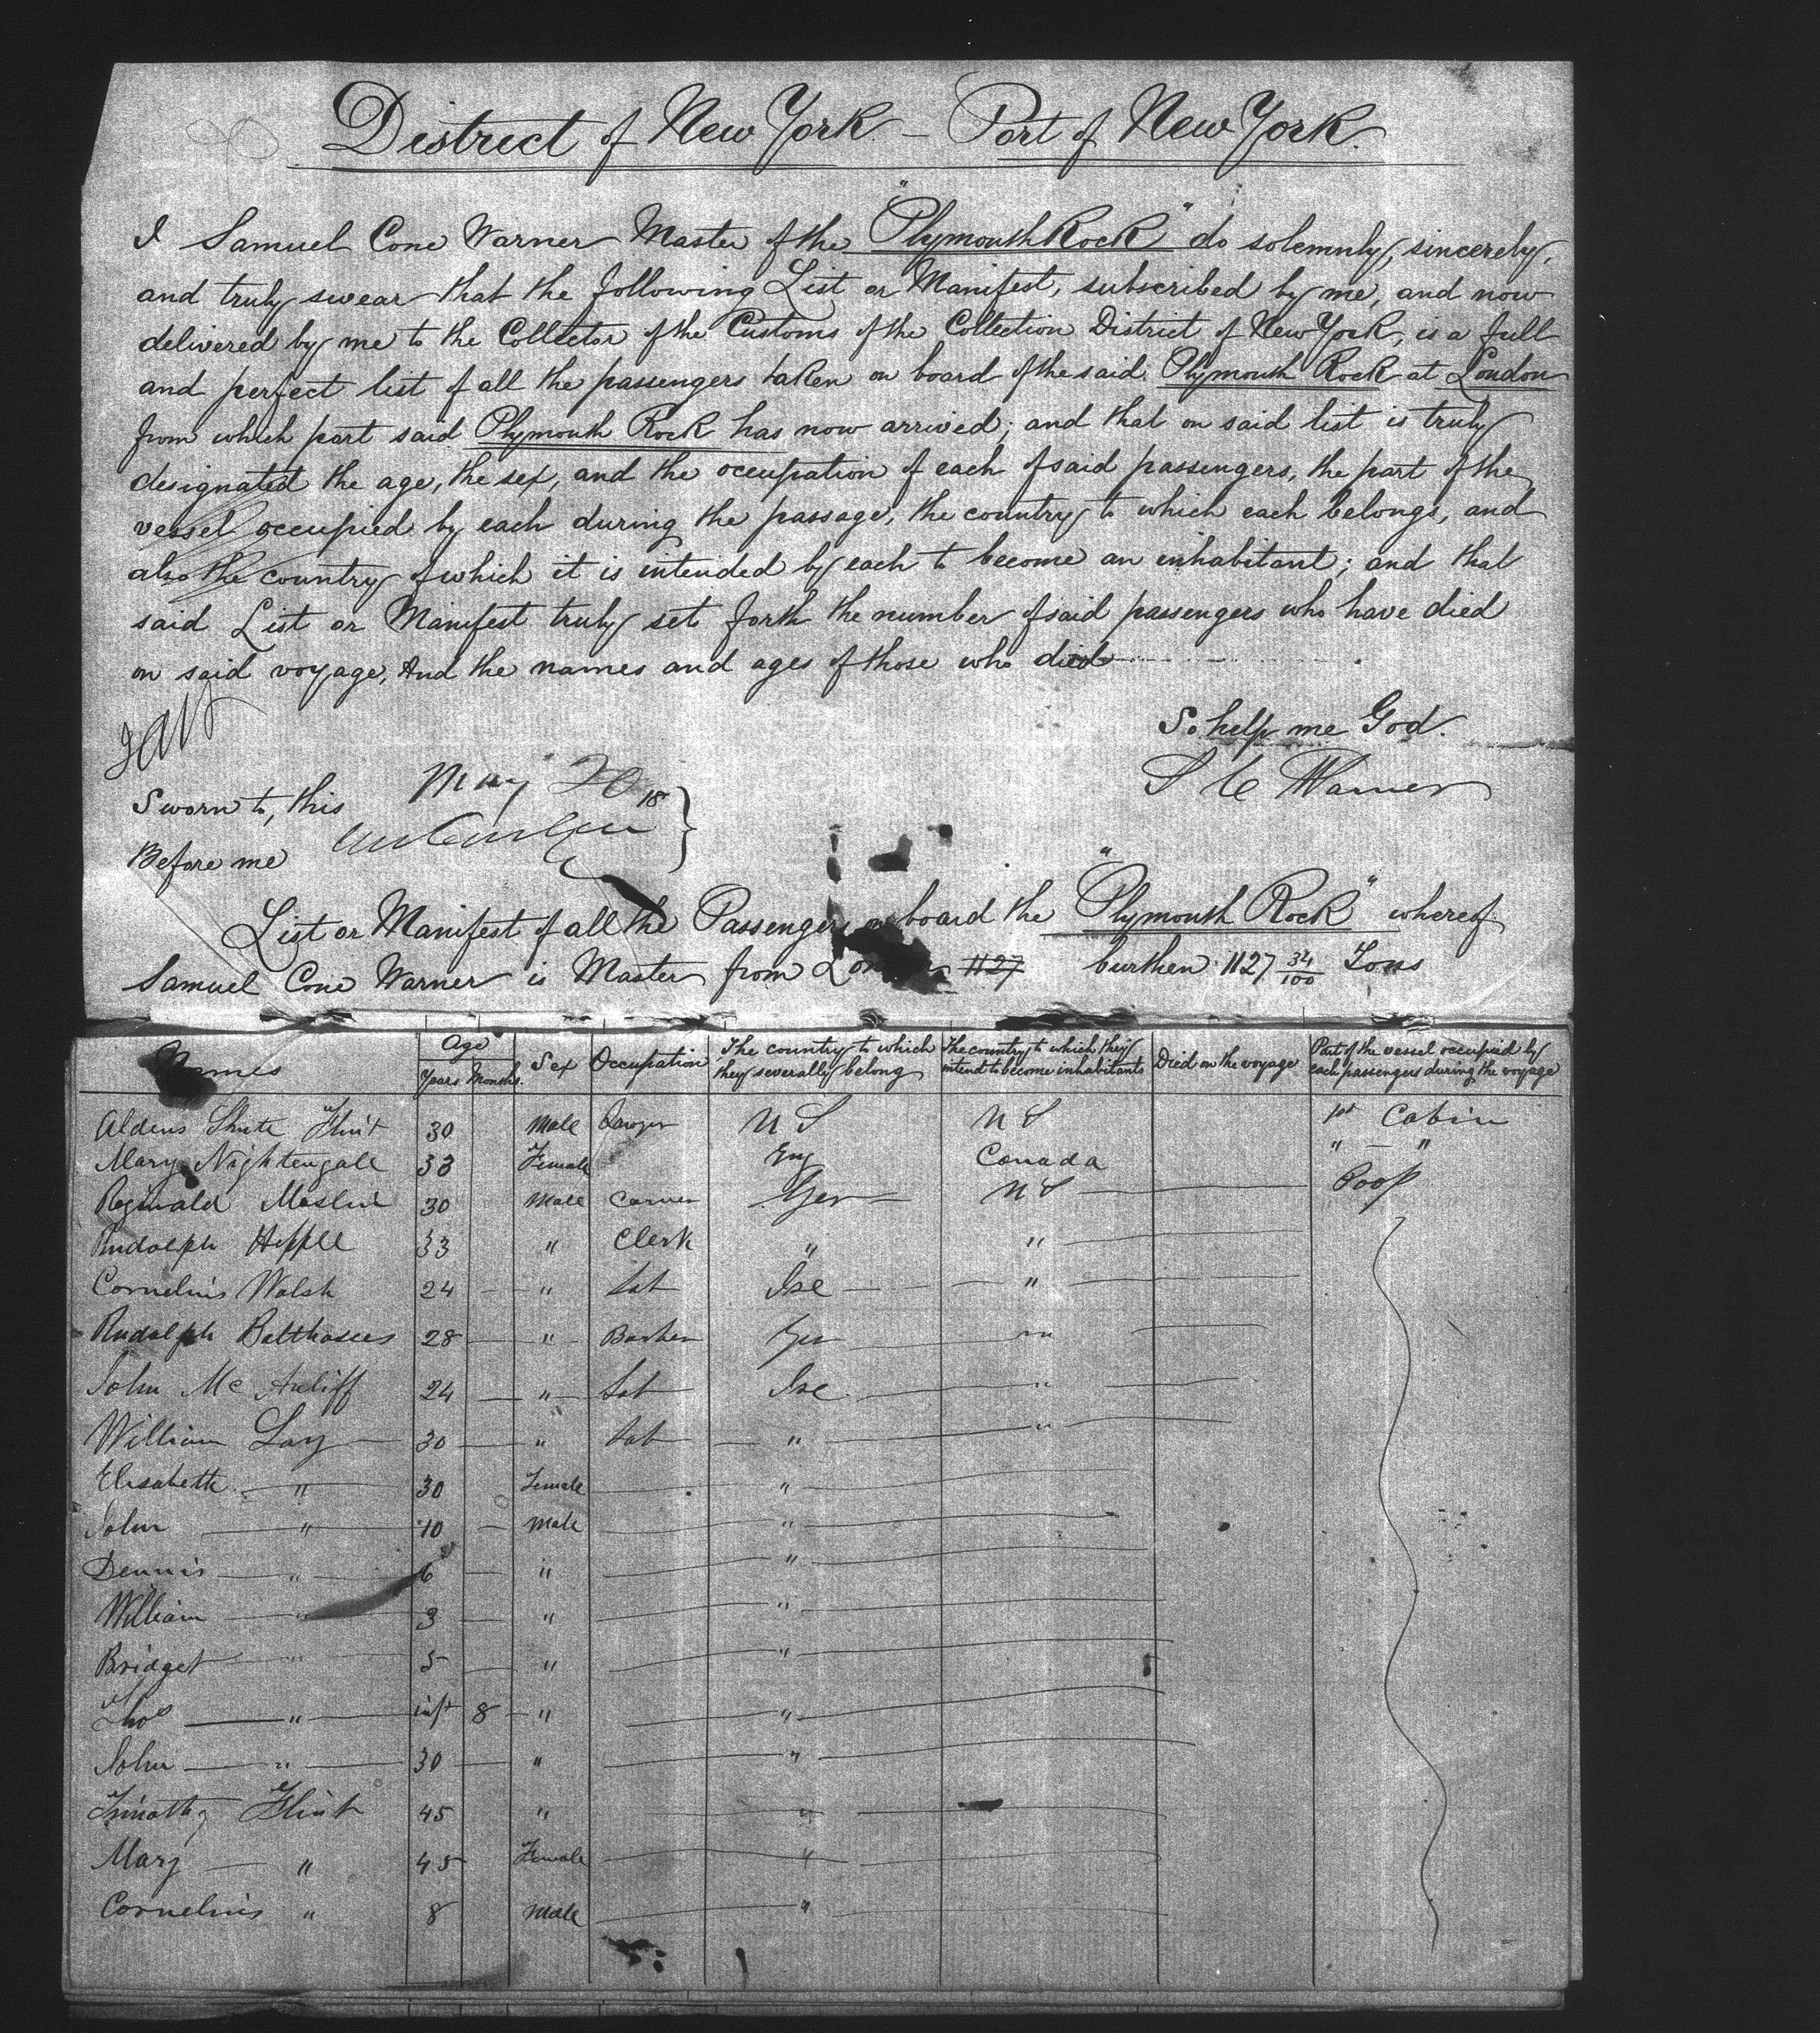 District of New York – Port of New York.
I Samuel Cone Warner Master of the "Plymouth Rock" do solemnly, sincerely,
and truly swear that the following List or Manifest, subscribed by me, and now
delivered by me to the Collector of the Customs of the Collection District of New York, is a full
and perfect list of all the passengers taken on board of the said Plymouth Rock at London
from which port said Plymouth Rock has now arrived; and that on said list is truly
designated the age, the sex, and the occupation of each of said passengers, the part of the
vessel occupied by each during the passage, the country to which each belongs, and
also the country of which it is intended by each to become an inhabitant; and that
said List or Manifest truly set forth the number of said passengers who have died
on said voyage, And the names and ages of those who died
So help me God.
S C Warner
Sworn to, this May 20 18
Before me
List or Manifest of all the Passengers on board the "Plymouth Rock" whereof
Samuel Cone Warner is Master from London 1127 burthen 1127 34/100 Tons
Names Age Years Months Sex Occupation The country to which they severally belong The country to which they intend to become inhabitants Died on the voyage Part of the vessel occupied by each passengers during the voyage
Flint 30 Male U S U S 1st Cabin
Mary Nightengale 33 Female Eng Canada " – "
Reginald 30 Male Carver Ger U S Poop
Rudolph Hepple 33 " Clerk " "
Cornelius Walsh 24 " Lab Ire "
Rudolph 28 " Ger "
John Mc 24 " Lab Ire "
William Lay 30 " Lab " "
Elisabeth " 30 Female "
John " 10 Male "
Dennis " 6 " "
William " 3 " "
Bridget " 5 " "
Thos " inft 8 " "
John " 30 " "
Timothy Flint 45 " "
Mary " 45 Female "
Cornelius " 8 Male "